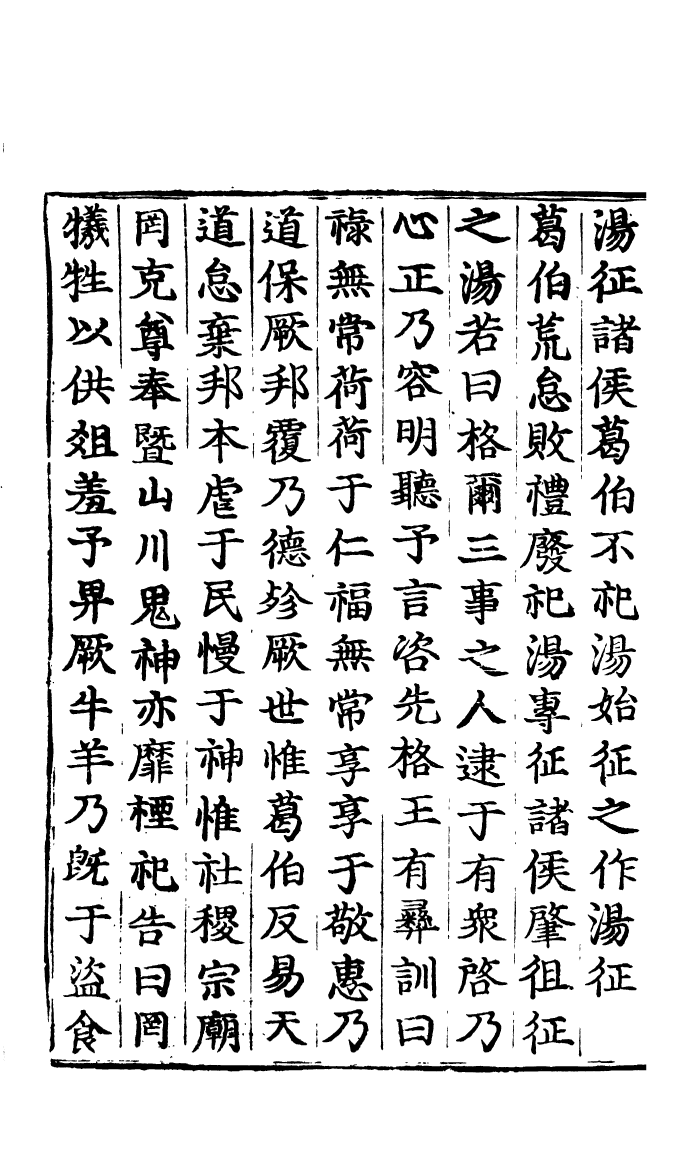 湯征諸侯葛伯不祀湯始征之作湯征
葛伯荒怠敗禮廢祀湯專征諸侯肇徂征
之湯若曰格爾三事之人逮于有衆啓乃
心正乃容明聽予言咨先格王有彝訓曰
祿無常荷荷于仁福無常享享于敬惠乃
道保厥邦覆乃德殄厥世惟葛伯反易天
道怠棄邦本虐于民慢于神惟社稷宗廟
罔克尊奉暨山川鬼神亦靡禋祀告曰罔
犧牲以供俎羞予畀厥牛羊乃旣于盜食